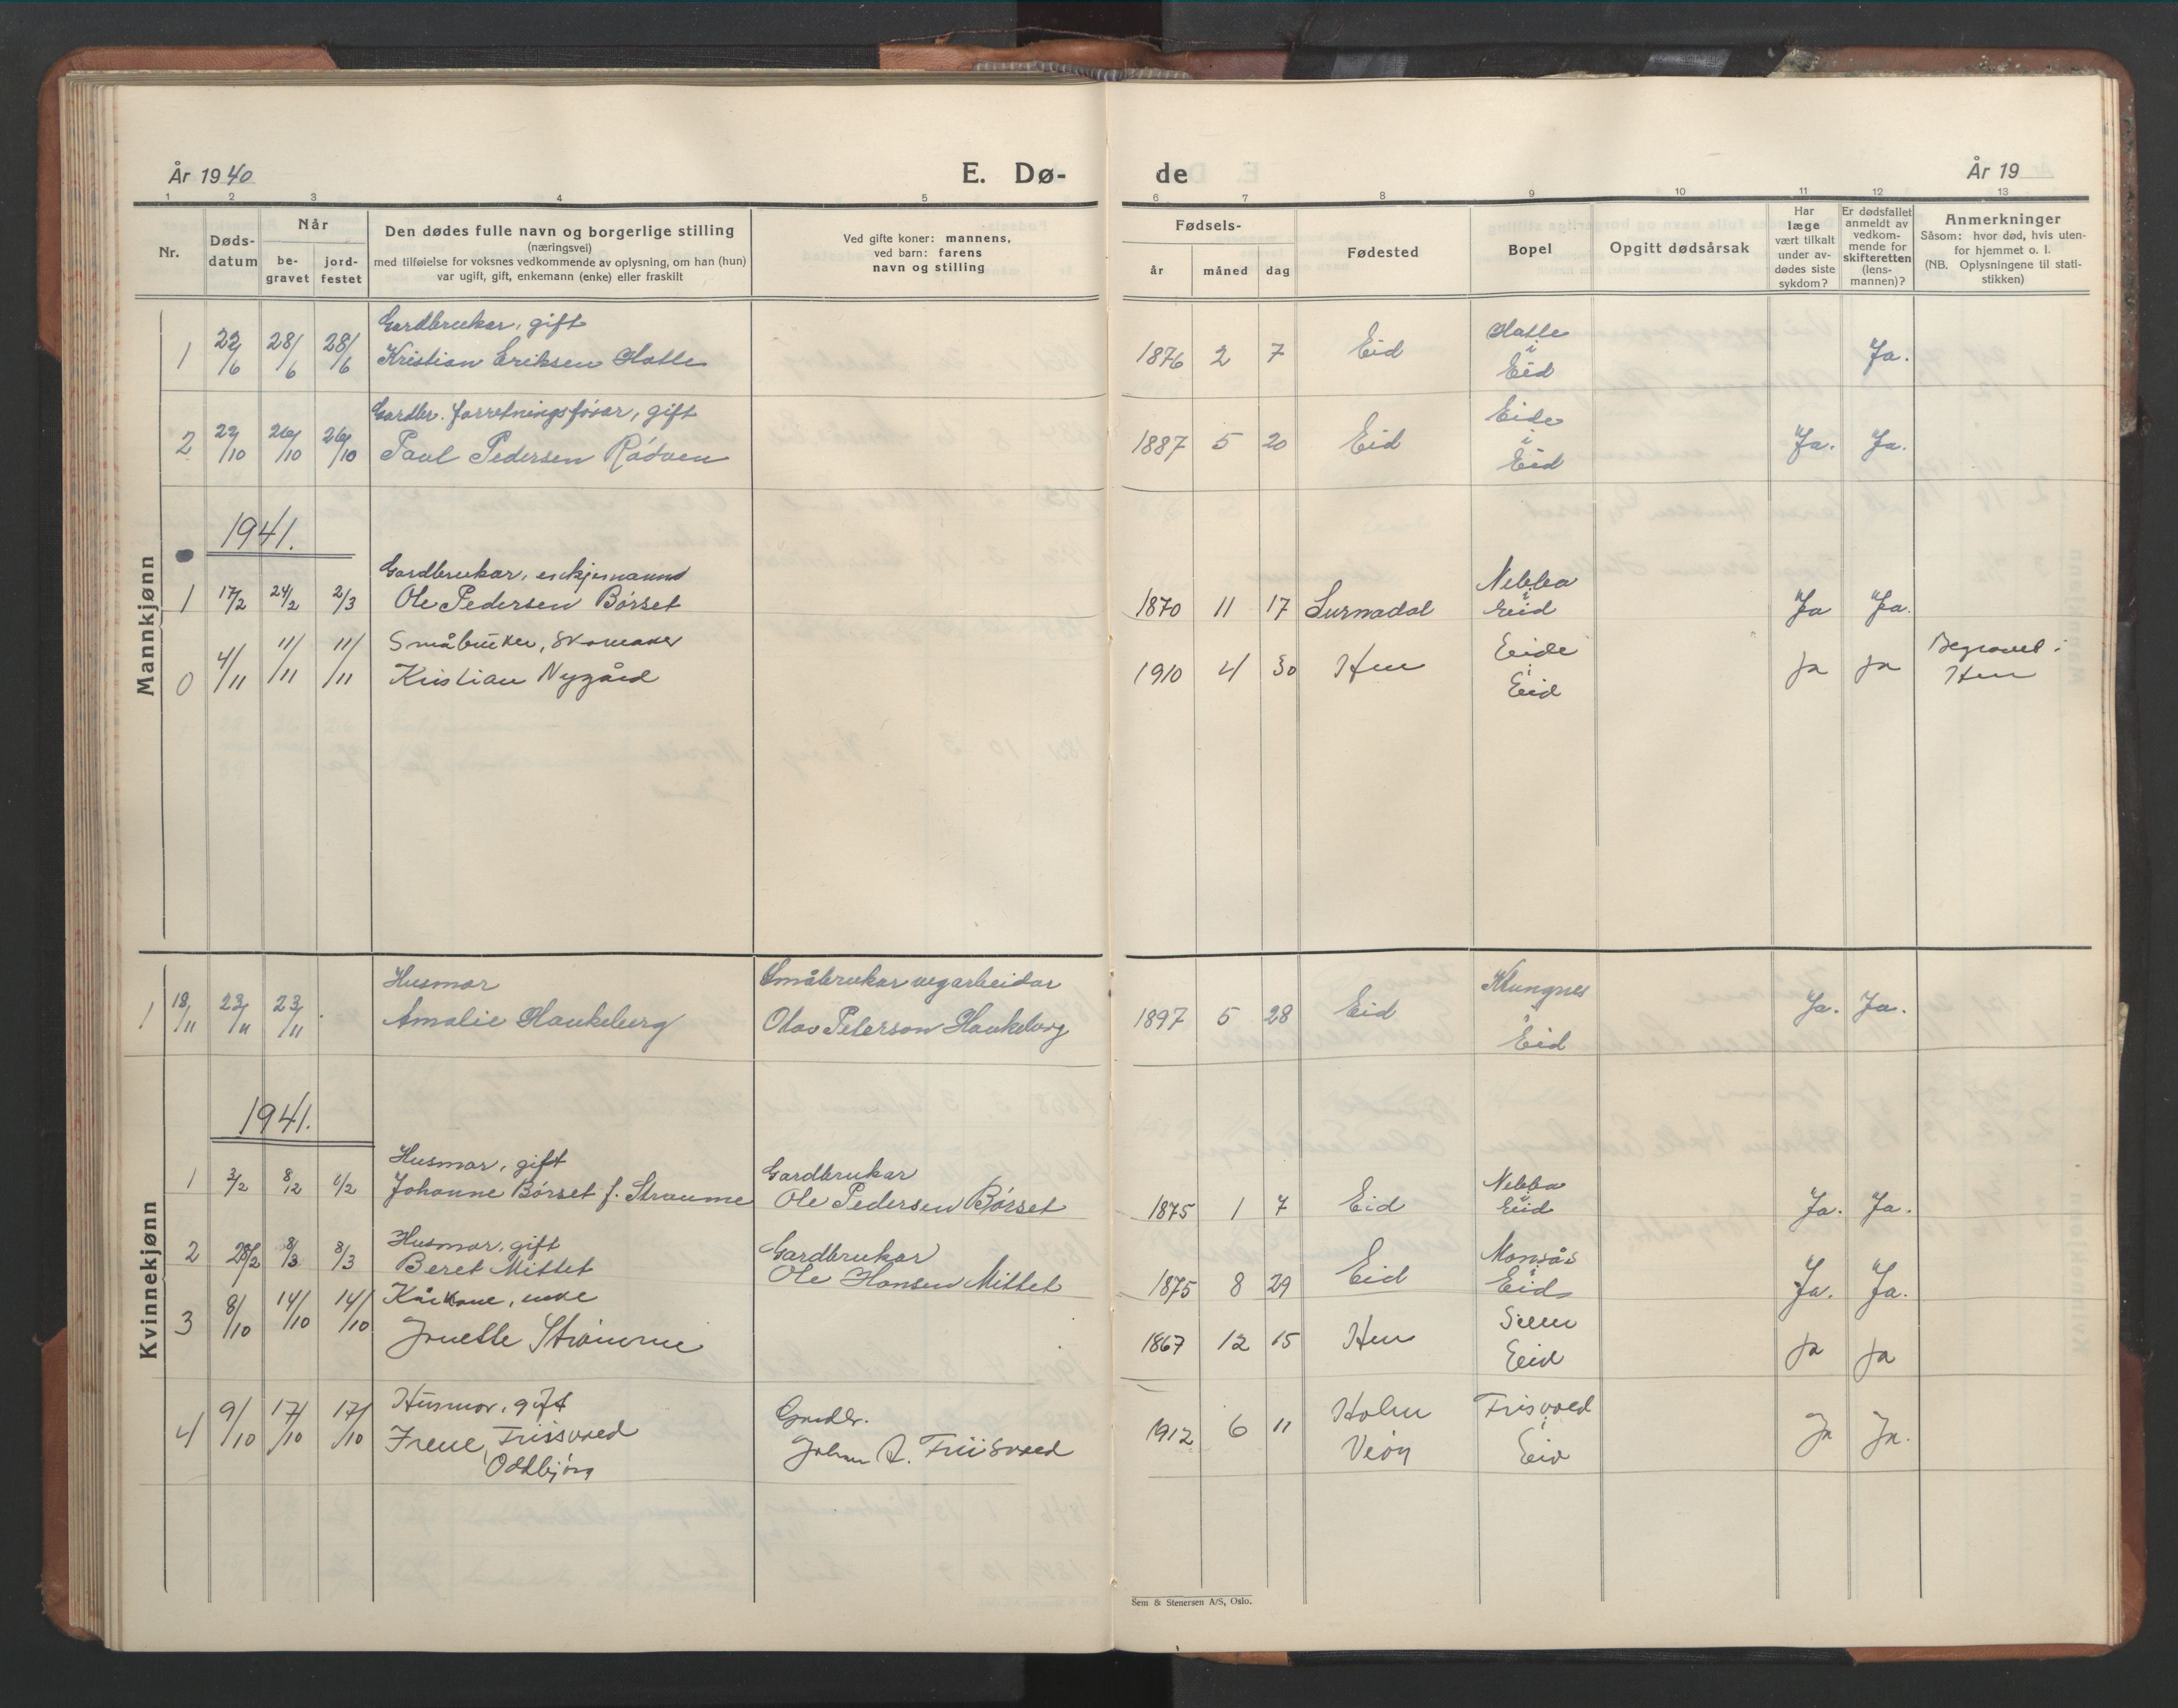 År 1940
E. Dø-
de
År 19
1 2 3 4 5 6 7 8 9 10 11 12 13
Nr.
Døds-
datum
Når
be-
gravet
jord-
festet
Den dødes fulle navn og borgerlige stilling
(næringsvei)
med tilføielse for voksnes vedkommende av oplysning, om han (hun)
var ugift, gift, enkemann (enke) eller fraskilt
Ved gifte koner: mannens,
ved barn: farens
navn og stilling
Fødsels-
år måned dag
Fødested
Bopel
Opgitt dødsårsak
Har
læge
vært tilkalt
under av-
dødes siste
sykdom?
Er dødsfallet
anmeldt av
vedkom-
mende for
skifteretten
(lens-
mannen)?
Anmerkninger
Såsom: hvor død, hvis uten-
for hjemmet o. l.
(NB. Oplysningene til stati-
stikken)
Mannkjønn
Gardbrukar, gift
1 22/6 28/6 28/6 Kristian Eriksen Hatle 1876 2 7 Eid Hatle
i
Eid Ja.
Gardbr. forretningsførar, gift
2 22/10 26/10 26/10 Paul Pedersen Rødven 1887 5 20 Eid Eide
i
Eid Ja. Ja.
1941.
Gardbrukar, enkjemann
1 17/2 24/2 2/3 Ole Pedersen Børset 1870 11 17 Surnadal Nebba
i
Eid Ja Ja.
Småbruker, skomaker
0 4/11 11/11 11/11 Kristian Nygård 1910 4 30 Hen Eide
i
Eid ja ja Begravet i
Hen
Kvinnekjønn
Husmor Småbrukar vegarbeidar
1 18/11 23/11 23/11 Amalie Haukeberg Olav Peterson Haukeberg 1897 5 28 Eid Klungnes
i
Eid Ja. Ja.
1941.
Husmor, gift Gardbrukar
1 3/2 8/2 8/2 Johanne Børset f. Straume Ole Pedersen Børset 1875 1 7 Eid Nebba
i
Eid Ja. Ja.
Husmor, gift Gardbrukar
2 28/2 8/3 8/3 Beret Mittet Ole Hansen Mittet 1875 8 29 Eid Monsås
i
Eid Ja. Ja.
Kårkone, enke
3 8/10 14/10 14/10 Strømme 1867 12 15 Hen
Eid ja ja
Husmor, gift Gardbr.
4 9/10 17/10 17/10 Irene Frisvoed
Oddbjørg Johan A. Friisvoed 1912 6 11 Holm
Veøy Frisvoed
i
Eid Ja Ja.
Sem & Stenersen A/S, Oslo.